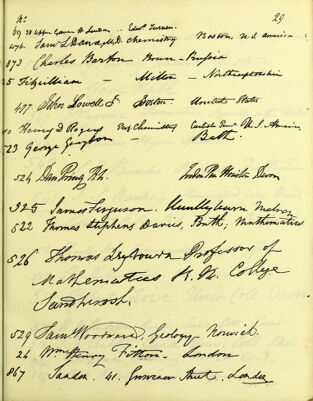 No.
29
69 38 Upper Gower St London .. Edwd Turner.
476. Saml L Dana, M.D. Chemistry Boston, U.S. america
873 Charles Barton Bourn - Prussia
5 Fitzwilliam - Milton - Northamptonshire
477 John Lowell Jr Boston United States
10 Henry D Rogers Prof Chemistry Carlisle U.S. America
523 George - Bath.
524 Devon
325 James Ferguson. Huntlyburn
522 Thomas Stephens Davies, Bath, Mathematics
526 Thomas Leybourn Professor of
Mathematics R. M. College
Sandhurst.
529 Saml Woodward, Geology Norwich
26 Wm Henry Fitton - London
867 41. Grosvenor Street, London